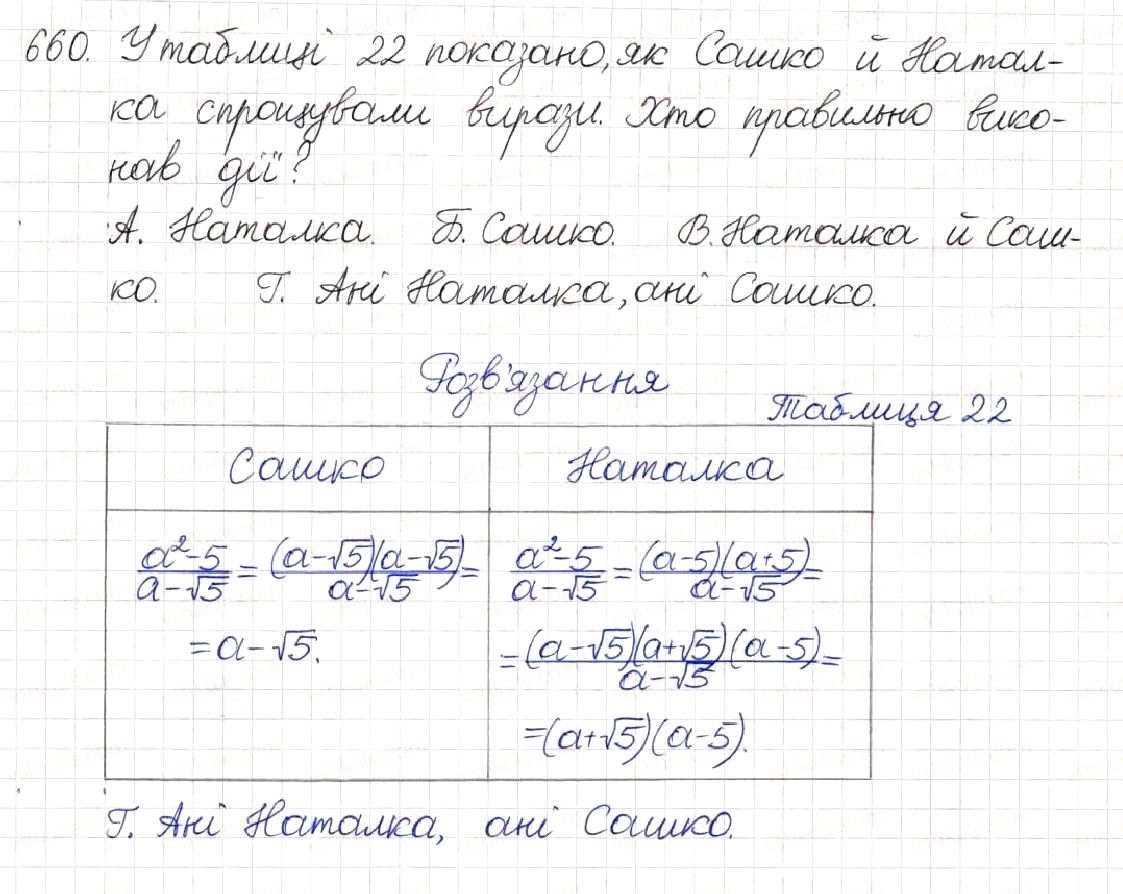 660. У таблиці 22 показано, як Сашко й Натал-
ка спрощували вирази. Хто правильно вико-
нав дії?
А. Наталка. Б. Сашко. В. Наталка й Саш-
ко. Г. Ані Наталка, ані Сашко.
Розв'язання
Таблиця 22
Сашко Наталка
(a²-5)/(a-√5) = ((a-√5)(a-√5))/(a-√5) = 
= a-√5.
(a²-5)/(a-√5) = ((a-5)(a+5))/(a-√5) =
= ((a-√5)(a+√5)(a-5))/(a-√5) =
=(a+√5)(a-5).
Г. Ані Наталка, ані Сашко.